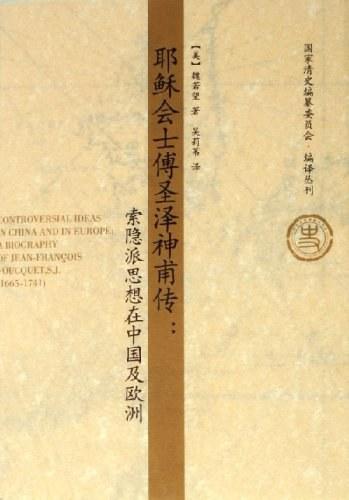 国家清史编纂委员会·编译丛刊
【美】魏若望 著 吴莉苇 译
耶稣会士傅圣泽神甫传：
索隐派思想在中国及欧洲
CONTROVERSIAL IDEAS
N CHINA AND IN EUROPE:
A BIOGRAPHY
OF JEAN-FRANÇOIS
FOUCQUET,S.J.
(1665-1741)